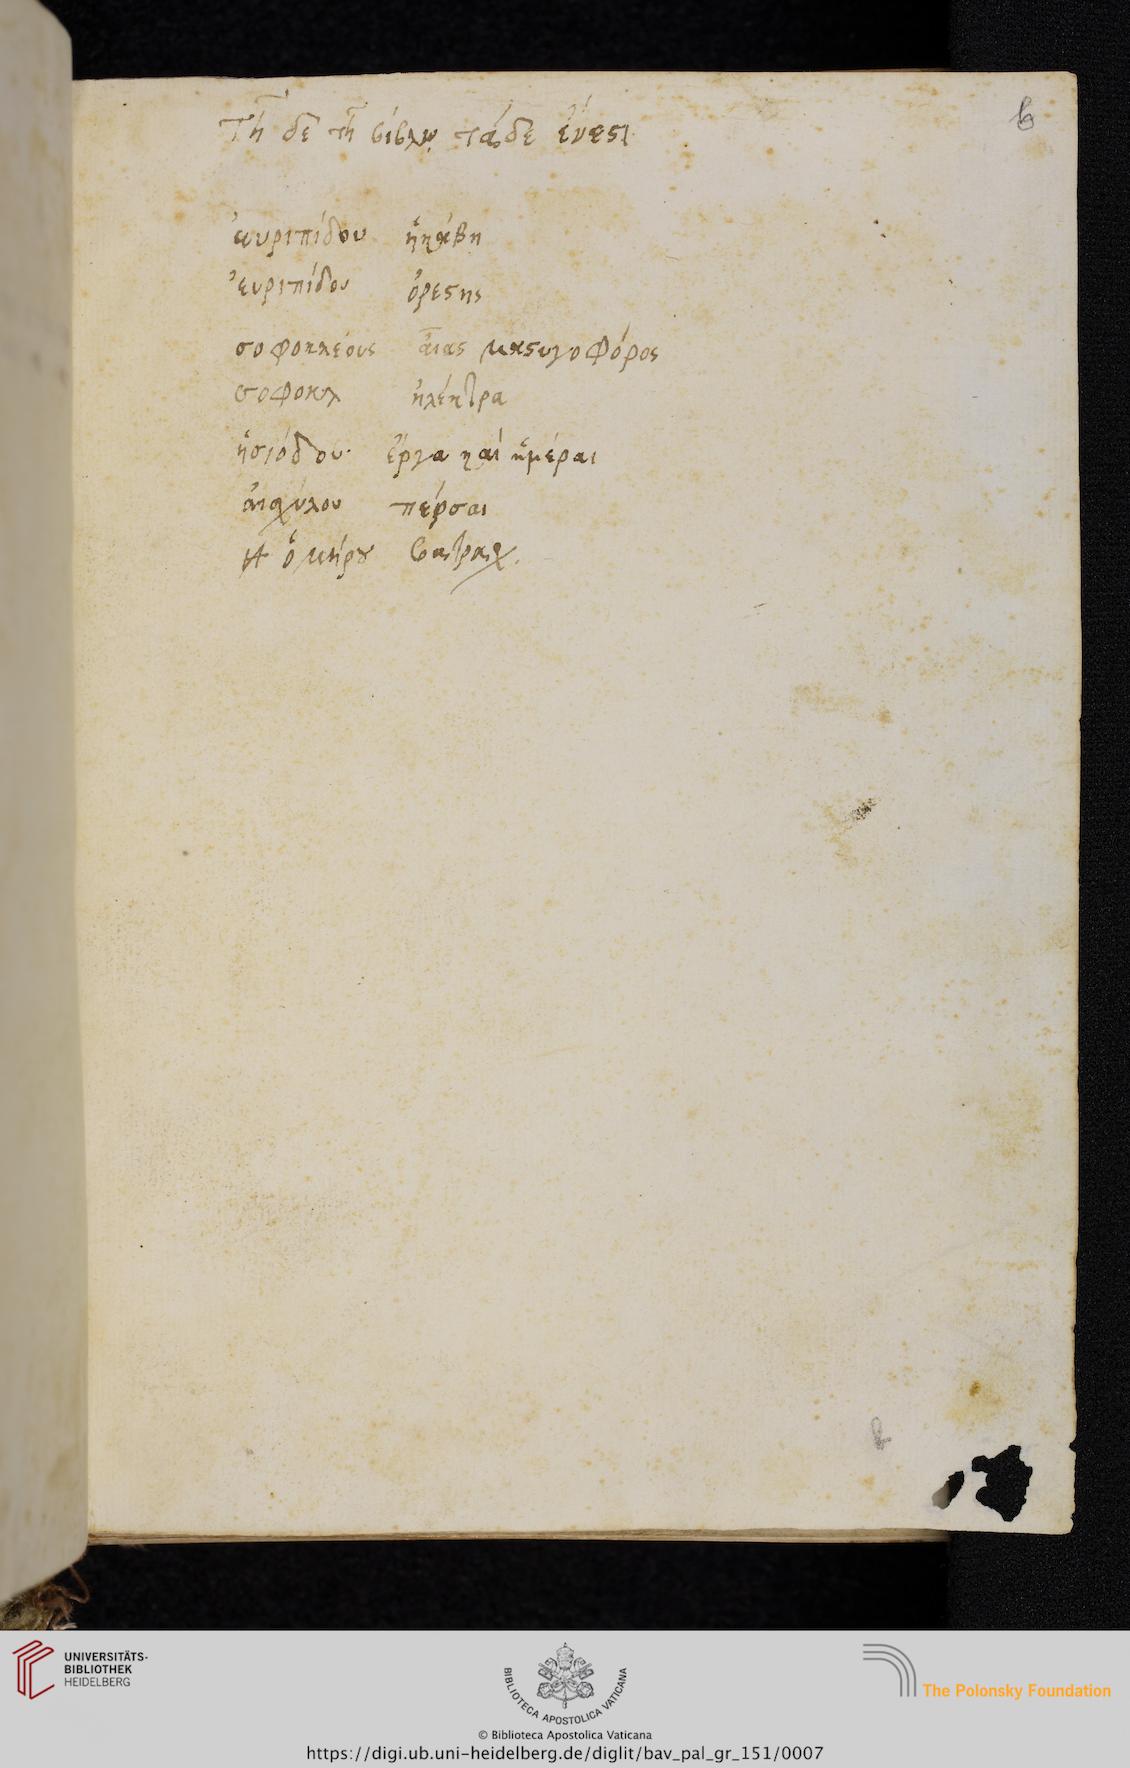 b
Τῆ δε τῆ βίβλῳ τάδε ἔνεστι
ἐυριπίδου ἑκάβη
ἐυριπίδου ὀρέστης
σοφοκλέους αἴας μαστιγοφόρος
σοφοκλ ἠλέκτρα
ἡσιόδου ἔργα καὶ ἡμέραι
ἀισχύλου πέρσαι
ὁμήρου βατραχ.
b
UNIVERSITÄTS-
BIBLIOTHEK
HEIDELBERG
BIBLIOTECA APOSTOLICA VATICANA
The Polonsky Foundation
© Biblioteca Apostolica Vaticana
https://digi.ub.uni-heidelberg.de/diglit/bav_pal_gr_151/0007